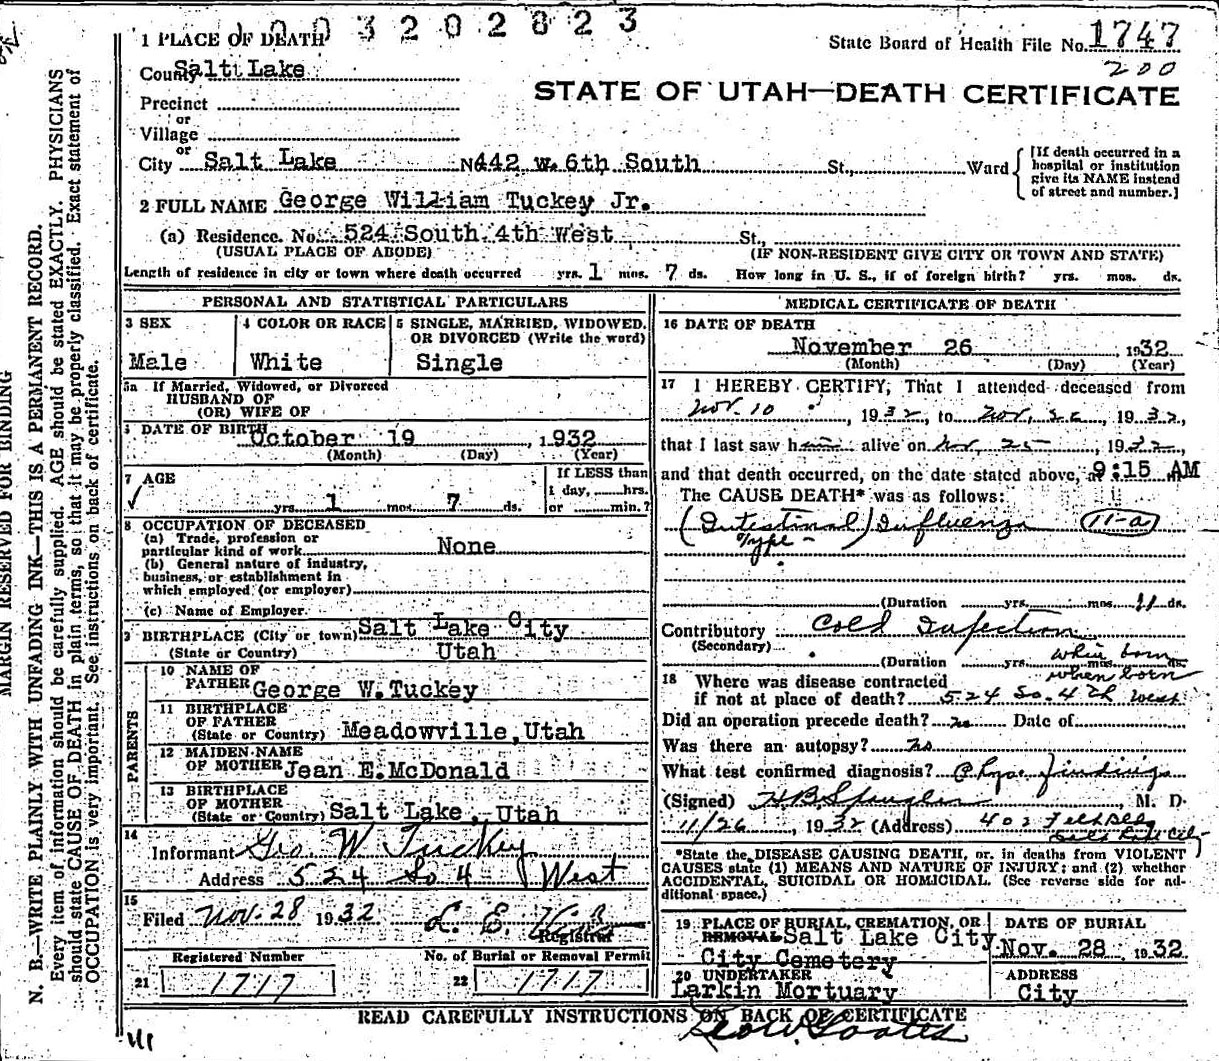 1003202823
State Board of Health File No. 1747
200
STATE OF UTAH—DEATH CERTIFICATE
1 PLACE OF DEATH
County Salt Lake
Precinct
or
Village
or
City Salt Lake No 442 w. 6th South St., Ward
[If death occurred in a
hospital or institution
give its NAME instead
of street and number.]
2 FULL NAME George William Tuckey Jr.
(a) Residence. No. 524 South 4th West St.,
(USUAL PLACE OF ABODE) (IF NON-RESIDENT GIVE CITY OR TOWN AND STATE)
Length of residence in city or town where death occurred yrs. 1 mos. 7 ds. How long in U. S., if of foreign birth? yrs. mos. ds.
PERSONAL AND STATISTICAL PARTICULARS
3 SEX
Male
4 COLOR OR RACE
White
5 SINGLE, MARRIED, WIDOWED,
OR DIVORCED (Write the word)
Single
5a If Married, Widowed, or Divorced
HUSBAND OF
(OR) WIFE OF
6 DATE OF BIRTH October 19, 1932
(Month) (Day) (Year)
7 AGE
yrs. 1 mos. 7 ds.
If LESS than
1 day, hrs.
or min.?
8 OCCUPATION OF DECEASED
(a) Trade, profession or
particular kind of work None
(b) General nature of industry,
business, or establishment in
which employed (or employer)
(c) Name of Employer
9 BIRTHPLACE (City or town) Salt Lake City
(State or Country) Utah
PARENTS
10 NAME OF
FATHER George W. Tuckey
11 BIRTHPLACE
OF FATHER
(State or Country) Meadowville, Utah
12 MAIDEN NAME
OF MOTHER Jean E. McDonald
13 BIRTHPLACE
OF MOTHER
(State or Country) Salt Lake, Utah
14
Informant Geo. W Tuckey
Address 524 So 4 West
15
Filed Nov. 28 1932 L. E.
Registrar
Registered Number
21 1717
No. of Burial or Removal Permit
22 1717
MEDICAL CERTIFICATE OF DEATH
16 DATE OF DEATH
November 26, 1932
(Month) (Day) (Year)
17 I HEREBY CERTIFY, That I attended deceased from
Nov. 10, 1932, to Nov. 26, 1932,
that I last saw him alive on Nov. 25, 1932,
and that death occurred, on the date stated above, at 9:15 AM
The CAUSE DEATH* was as follows:
(Intestinal) Influenza 11-a
Type-
(Duration yrs. mos. 11 ds.
Contributory Cold Infection
(Secondary)
when born
(Duration yrs. mos. ds.
when born
18 Where was disease contracted
if not at place of death? 524 So. 4th West
Did an operation precede death? no Date of
Was there an autopsy? no
What test confirmed diagnosis? Phys findings
(Signed) H B Spengler, M. D.
11/26, 1932 (Address) 402 Felt Bldg
Salt Lake City
*State the DISEASE CAUSING DEATH, or, in deaths from VIOLENT
CAUSES state (1) MEANS AND NATURE OF INJURY; and (2) whether
ACCIDENTAL, SUICIDAL OR HOMICIDAL. (See reverse side for ad-
ditional space.)
19 PLACE OF BURIAL, CREMATION, OR
REMOVAL Salt Lake City
City Cemetery
DATE OF BURIAL
Nov. 28, 1932
20 UNDERTAKER
Larkin Mortuary
ADDRESS
City
READ CAREFULLY INSTRUCTIONS ON BACK OF CERTIFICATE
MARGIN RESERVED FOR BINDING
N. B.—WRITE PLAINLY WITH UNFADING INK—THIS IS A PERMANENT RECORD.
Every item of information should be carefully supplied. AGE should be stated EXACTLY. PHYSICIANS
should state CAUSE OF DEATH in plain terms, so that it may be properly classified. Exact statement of
OCCUPATION is very important. See instructions on back of certificate.